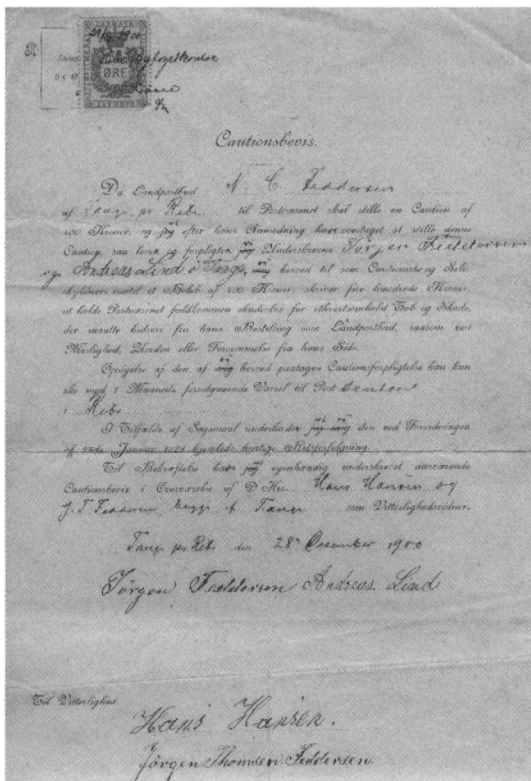 29/12 1900
DANMARK
ØRE
Cautionsbevis.
Da Landpostbud N. C. Feddersen
af Tange pr Ribe til Postvæsenet skal stille en Caution af
200 Kroner, og jeg efter hans Anmodning have overtaget at stille denne
Caution, saa lover og forpligter jeg Undertegnede Jørgen Feddersen
og Andreas Lind i Tange, mig herved til som Cautionist og Selv-
skyldner indtil et Beløb af 200 Kroner, skriver two hundrede Kroner,
at holde Postvæsenet fuldkommen skadesløs for ethvertsomhelst Tab og Skade,
der maatte hidrøre fra hans Bestilling som Landpostbud, saasom ved
Uærlighed, Uorden eller Forsømmelse fra hans Side.
Opsigelse af den af mig herved paatagne Cautionsforpligtelse kan kun
ske med 2 Maaneds forudgaaende Varsel til Post
i Ribe
I Tilfælde af Søgsmaal underkaster jeg mig den ved Forordningen
af 25de Januar 1828 hjemlede hurtige Retsforfølgning.
Til Bekræftelse have jeg egenhændig underskrevet nærværende
Cautionsbevis i Overværelse af D'Hrr. Hans Hansen og
J. T. Feddersen, begge af Tange som Vitterlighedsvidner.
Tange pr Ribe den 28de December 1900
Jørgen Feddersen Andreas. Lind
Til Vitterlighed
Hans Hansen.
Jörgen Thomsen Feddersen